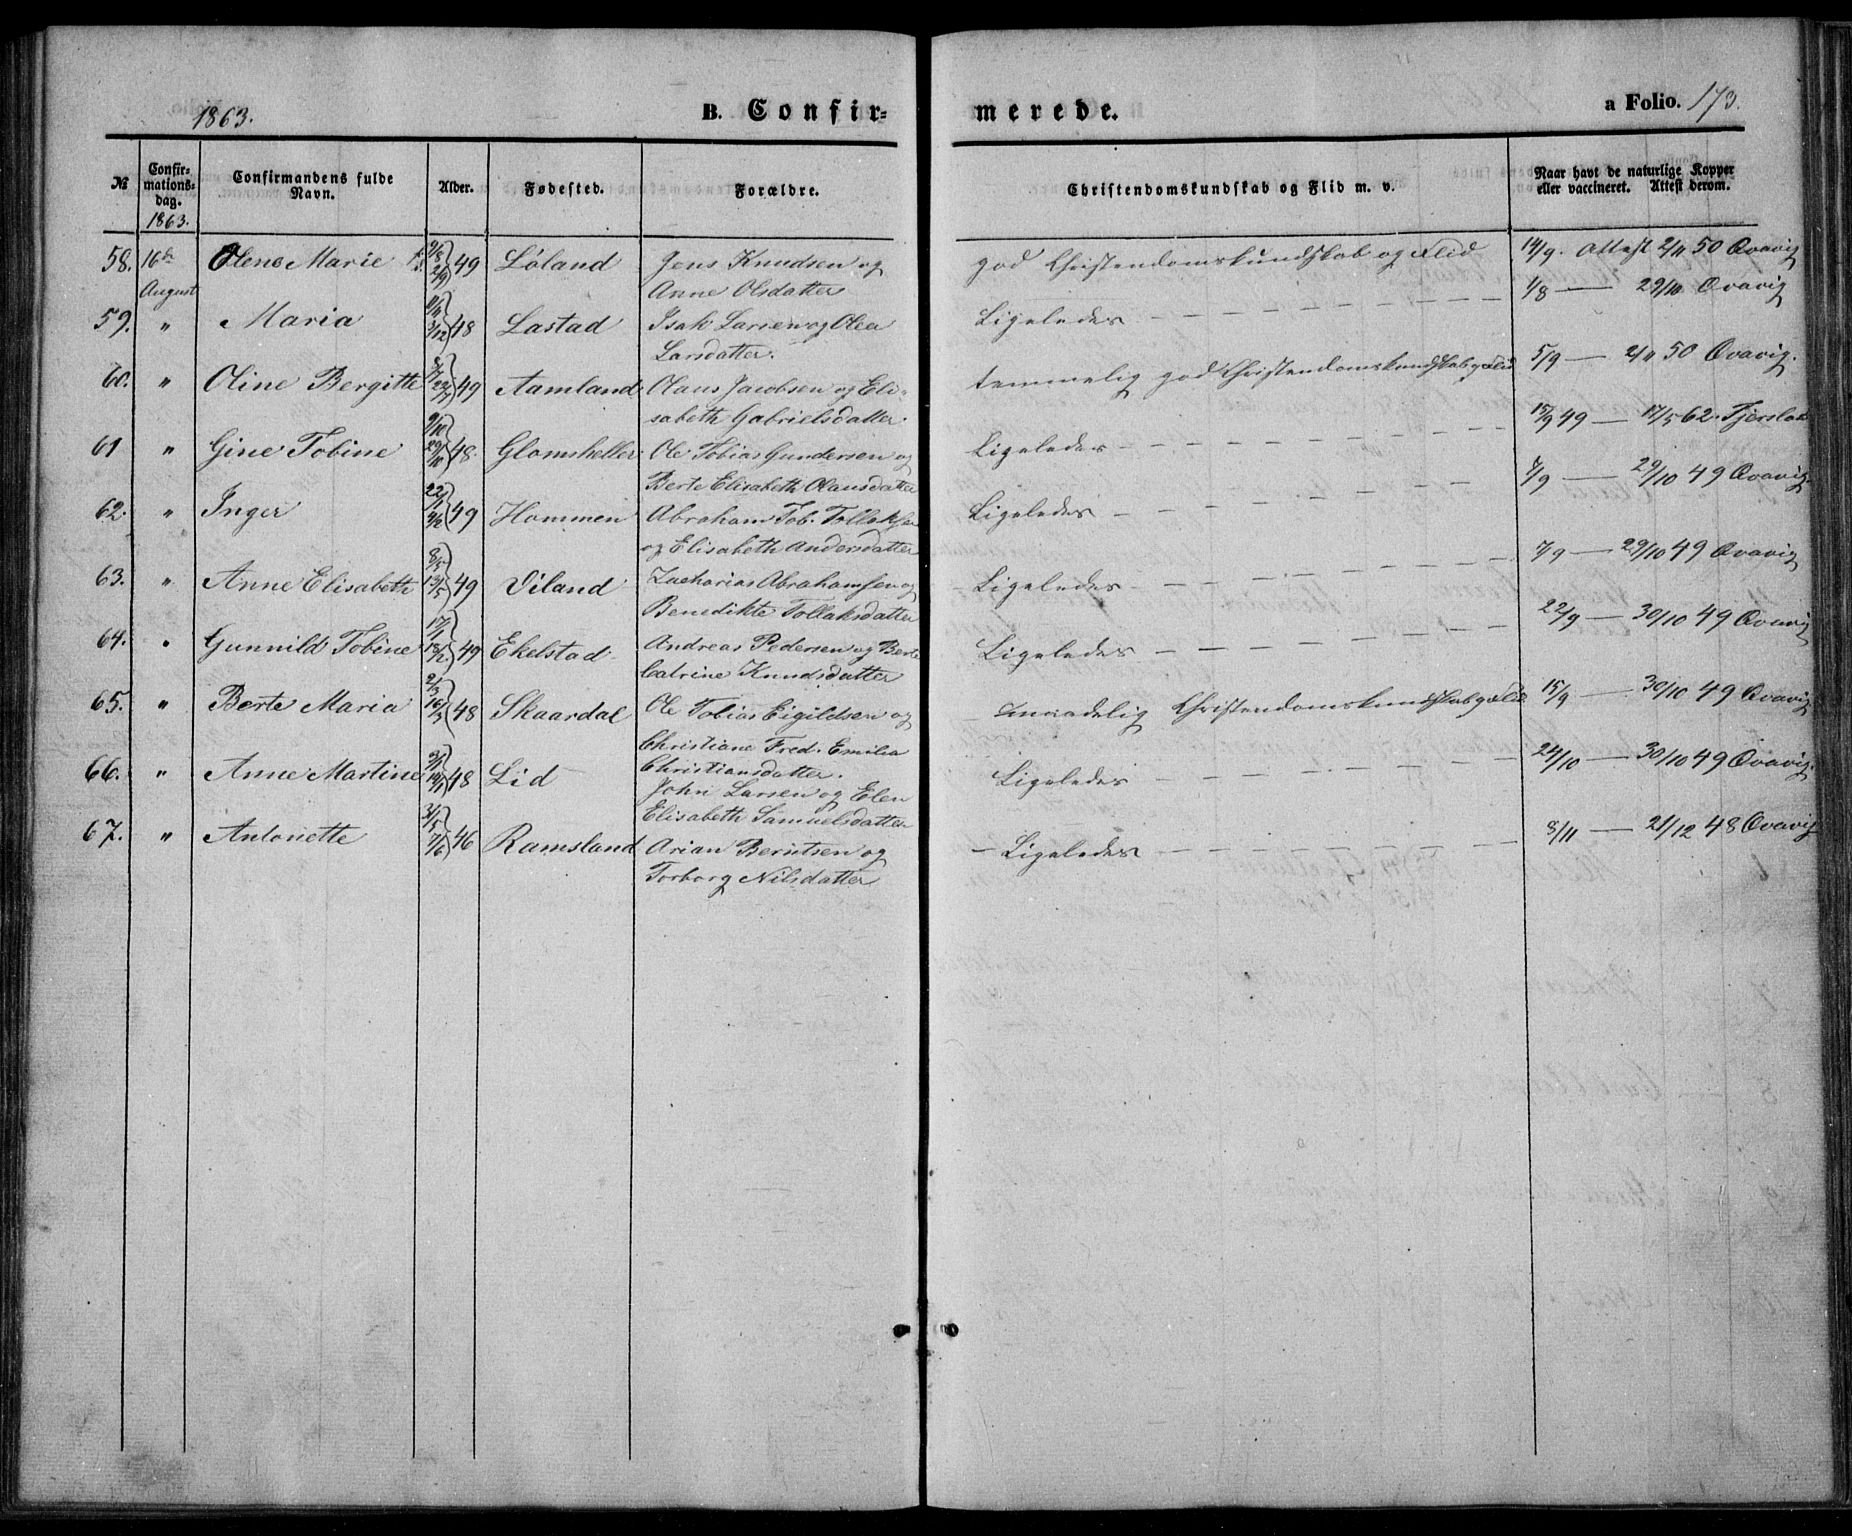 1863.
B. Confir=
merede.
a Folio. 173.
№
Confir-
mations-
dag.
1863.
Confirmandens fulde
Navn.
Alder.
Fødested.
Forældre.
Christendomskundskab og Flid m. v.
Naar havt de naturlige Kopper
eller vaccineret. Attest derom.
58. 16de Olene Marie 49 Löland Jens Knudsen og god Christendomskundskab og Flid 14/9. Attest 2/11 50 Qvavig
August Anne Olsdatter
59. " Maria 3/12 48 Lastad Isak Larsen og Olea Ligeledes 1/8 — 29/10 Qvavig
Larsdatter.
60. " Oline Bergitte 49 Aamland Olaus Jacobsen og Eli- temmelig god Christendomskundskab og Flid 5/9 — 2/11 50 Qvavig.
sabeth Gabrielsdatter.
61 " Gine Tobine 9/10 29/10 48. Glomsheller Ole Tobias Gundersen og Ligeledes 15/9 49 — 17/5 62.
Berte Elisabeth Olausdatter
62. " Inger 49 Hommen Abraham Tob. Tollaksen Ligeledes 7/9 — 29/10 49 Qvavig
og Elisabeth Andersdatter
63. " Anne Elisabeth 8/5 13/5 49 Viland Zacharias Abrahamsen og Ligeledes 7/9 — 29/10 49 Qvavig
Benedikte Tollaksdatter
64. " Gunnild Tobine 17/1 18/2 49 Ekelstad Andreas Pedersen og Berte Ligeledes 22/9 — 30/10 49 Qvavig
Catrine Knudsdatter
65. " Berte Maria 2/3 16/3 48 Skaardal Ole Tobias Eigildsen og maadelig Christendomskundskab og Flid 15/9 — 30/10 49 Qvavig
Christiane Fred. Emilia
Christiansdatter.
66. " Anne Martine 48 Lid John Larsen og Elen Ligeledes 24/10 — 30/10 49 Qvavig.
Elisabeth Samuelsdatter
67. " Antonette 31/5 7/6 46 Ramsland Arian Berntsen og Ligeledes 8/11 — 21/12 48 Qvavig
Torborg Nilsdatter